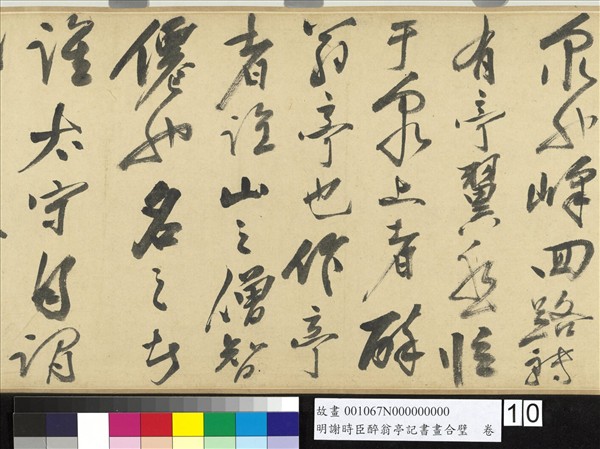 泉也峰回路轉
有亭翼然臨
于泉上者醉
翁亭也作亭
者誰山之僧智
僊也名之者
誰太守自謂
故畫 001067N000000000
明謝時臣醉翁亭記書畫合璧 卷
10